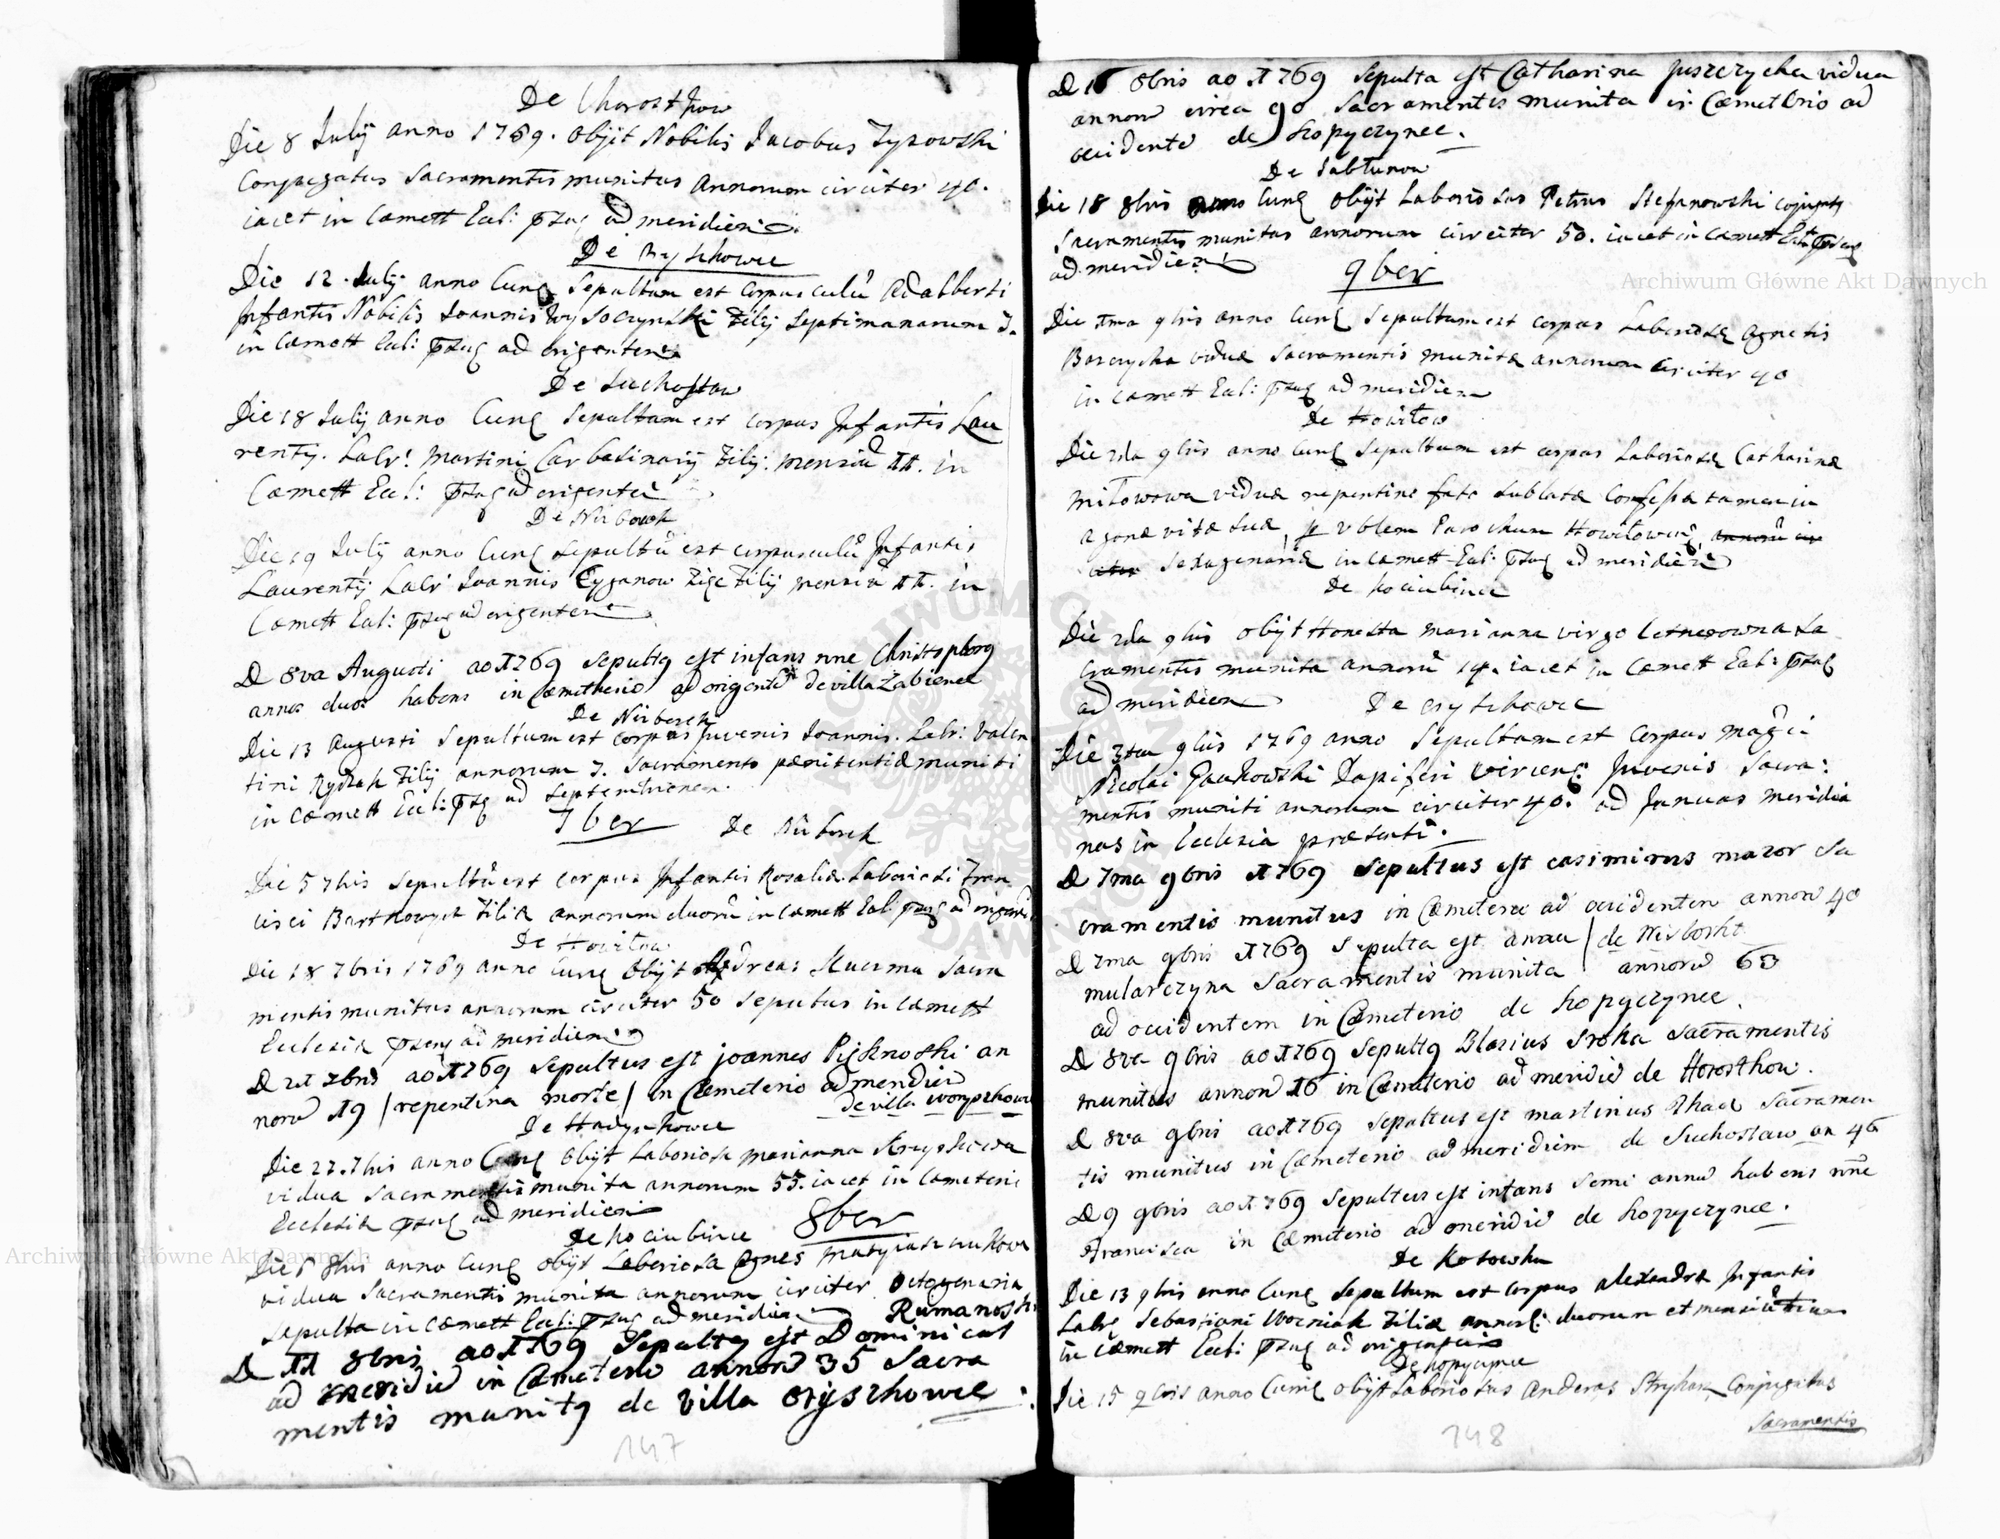 De Chorostkow
Die 8 Julij anno 1769. Obijt Nobilis Jacobus Zyrowski
Conjugatus Sacramentis munitus annorum circiter 40.
iacet in Cœmett Eccl: ad meridiem
De
Die 12. Julij anno Curr Sepultum est Corpusculū Adalberti
Infantis Nobilis Joannis Wysoczynski Filij Septimanarum 3.
in Cœmett Eccl: ad orientem
De Suchostaw
Die 18 Julij anno Curr Sepultum est Corpus Infantis Lau
rentij. Labr: Martini Carbasinarij Filij. mensiū II. in
Cœmett Eccl: ad orientē
De Nirbowk
Die 19 Julij anno Curr Sepultū est corpusculū Infantis
Laurentij Labr Joannis Filij mensiū II. in
Cœmett Eccl: ad orientem
D 8va Augusti ao 1769 Sepultq est infans nne Christophorq
annos duos habens in Cœmitherio ad orientē de villa Zabience
De Nirborck
Die 13 Augusti Sepultum est corpus Juvenis Joannis. Labr: Valen
tini Filij annorum 7. Sacramento pœnitentiæ muniti
in Cœmett Eccl: ad Septemtrionem.
7ber De Nirborck
Die 5 7bris Sepultū est Corpus Infantis Rosaliæ Laboriosi Fran
cisci Filiæ annorum duorū in Cœmett Eccl: ad orientē
De Howilow
Die 18 7bris 1769 anno Curr Obijt Andreas Kuczma Sacra
mentis munitus annorum circiter 50 Sepultus in Cœmett
Ecclesiæ ad meridiem
D 21 7bris ao 1769 Sepultus est Joannes Pięknoski an
norū 19 / repentina morte / in Cœmeterio ad meridiē
de villa
De Hadynkowce
Die 22. 7bris anno Curr Obijt Laboriosa Marianna
vidua Sacramentis munita annorum 55. iacet in Cœmeterio
Ecclesiæ ad meridiem
De Kociubince 8ber
Die 8bris anno Curr Obijt Laboriosa Agnes
vidua Sacramentis munita annorum circiter Octogenaria
Sepulta in Cœmett Eccl: ad meridiem Rumanoski
D 11 8bris ao 1769 Sepultq est Dominicus
ad meridiē in Cœmeterio annorū 35 Sacra
mentis munitq de villa Oryszkowce
147
D 16 8bris ao 1769 Sepulta est Catharina Juszczycha vidua
annorū circa 90 Sacramentis munita in Cœmeterio ad
occidentē de Kopyczynce.
De Jabłunow
Die 18 8bris anno Curr Obijt Laboriosus Petrus Stefanowski Conjugatq
Sacramentis munitus annorum circiter 50. iacet in Cœmett
ad meridiem
9ber
Die 1ma 9bris anno Curr Sepultum est corpus Laboriosæ Agnetis
viduæ Sacramentis munitæ annorum circiter 90
in Cœmett Eccl: ad meridiem
De Howiłow
Die 2da 9bris anno Curr Sepultum est corpus Laboriosæ Catharinæ
Miłowowa viduæ repentino fato sublatæ Confessæ tamen in
agone vitæ suæ, Parochum Howilowiē annorū cir
citer Sexagenariæ in Cœmett Eccl: ad meridiē
De Kociubince
Die 2da 9bris obijt Honesta Marianna virgo Sa
cramentis munita annorū 14. iacet in Cœmett Eccl:
ad meridiem De Oryszkowce
Die 3tia 9bris 1769 anno Sepultum est Corpus
Nicolai Dapiferi Juvenis Sacra:
mentis muniti annorum circiter 40. ad Januas meridia
nas in Ecclesia præsenti.
D 7ma 9bris 1769 Sepultus est Casimirus Mazor Sa
cramentis munitus in Cœmeterio ad occidentem annorū 40
D 7ma 9bris 1769 Sepulta est Anna / de Nirborkk
Mularczyna Sacramentis munita annorū 63
ad occidentem in Cœmeterio de Kopyczynce.
D 8va 9bris ao 1769 Sepultq Blasius Sroka Sacramentis
munitus annorū 16 in Cœmeterio ad meridiē de Horostkow.
D 8va 9bris ao 1769 Sepultus est Martinus Sacramen
tis munitus in Cœmeterio ad meridiem de Suchostaw an 46
D 9 9bris ao 1769 Sepultus est infans Semi annū habens nne
Francisca in Cœmeterio ad meridiē de Kopyczynce.
De Kotowka
Die 13 9bris anno Curr Sepultum est corpus Alexandræ Infantis
Labr Sebastiani Wozniak Filiæ duorum et mensiū
in Cœmett Eccl: ad
De Kopycynce
Die 15 9bris anno Curr Obijt Laboriosus Andreas Conjugatus
Sacramentis
148
Archiwum Główne Akt Dawnych
Archiwum Główne Akt Dawnych
ARCHIWUM GŁÓWNE AKT DAWNYCH